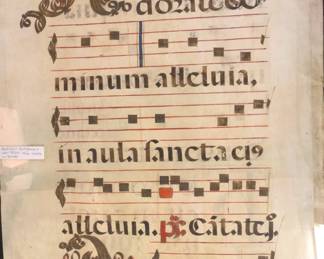 dorate do
minum alleluia,
in aula sancta ei9
alleluia. ps. Cātate.